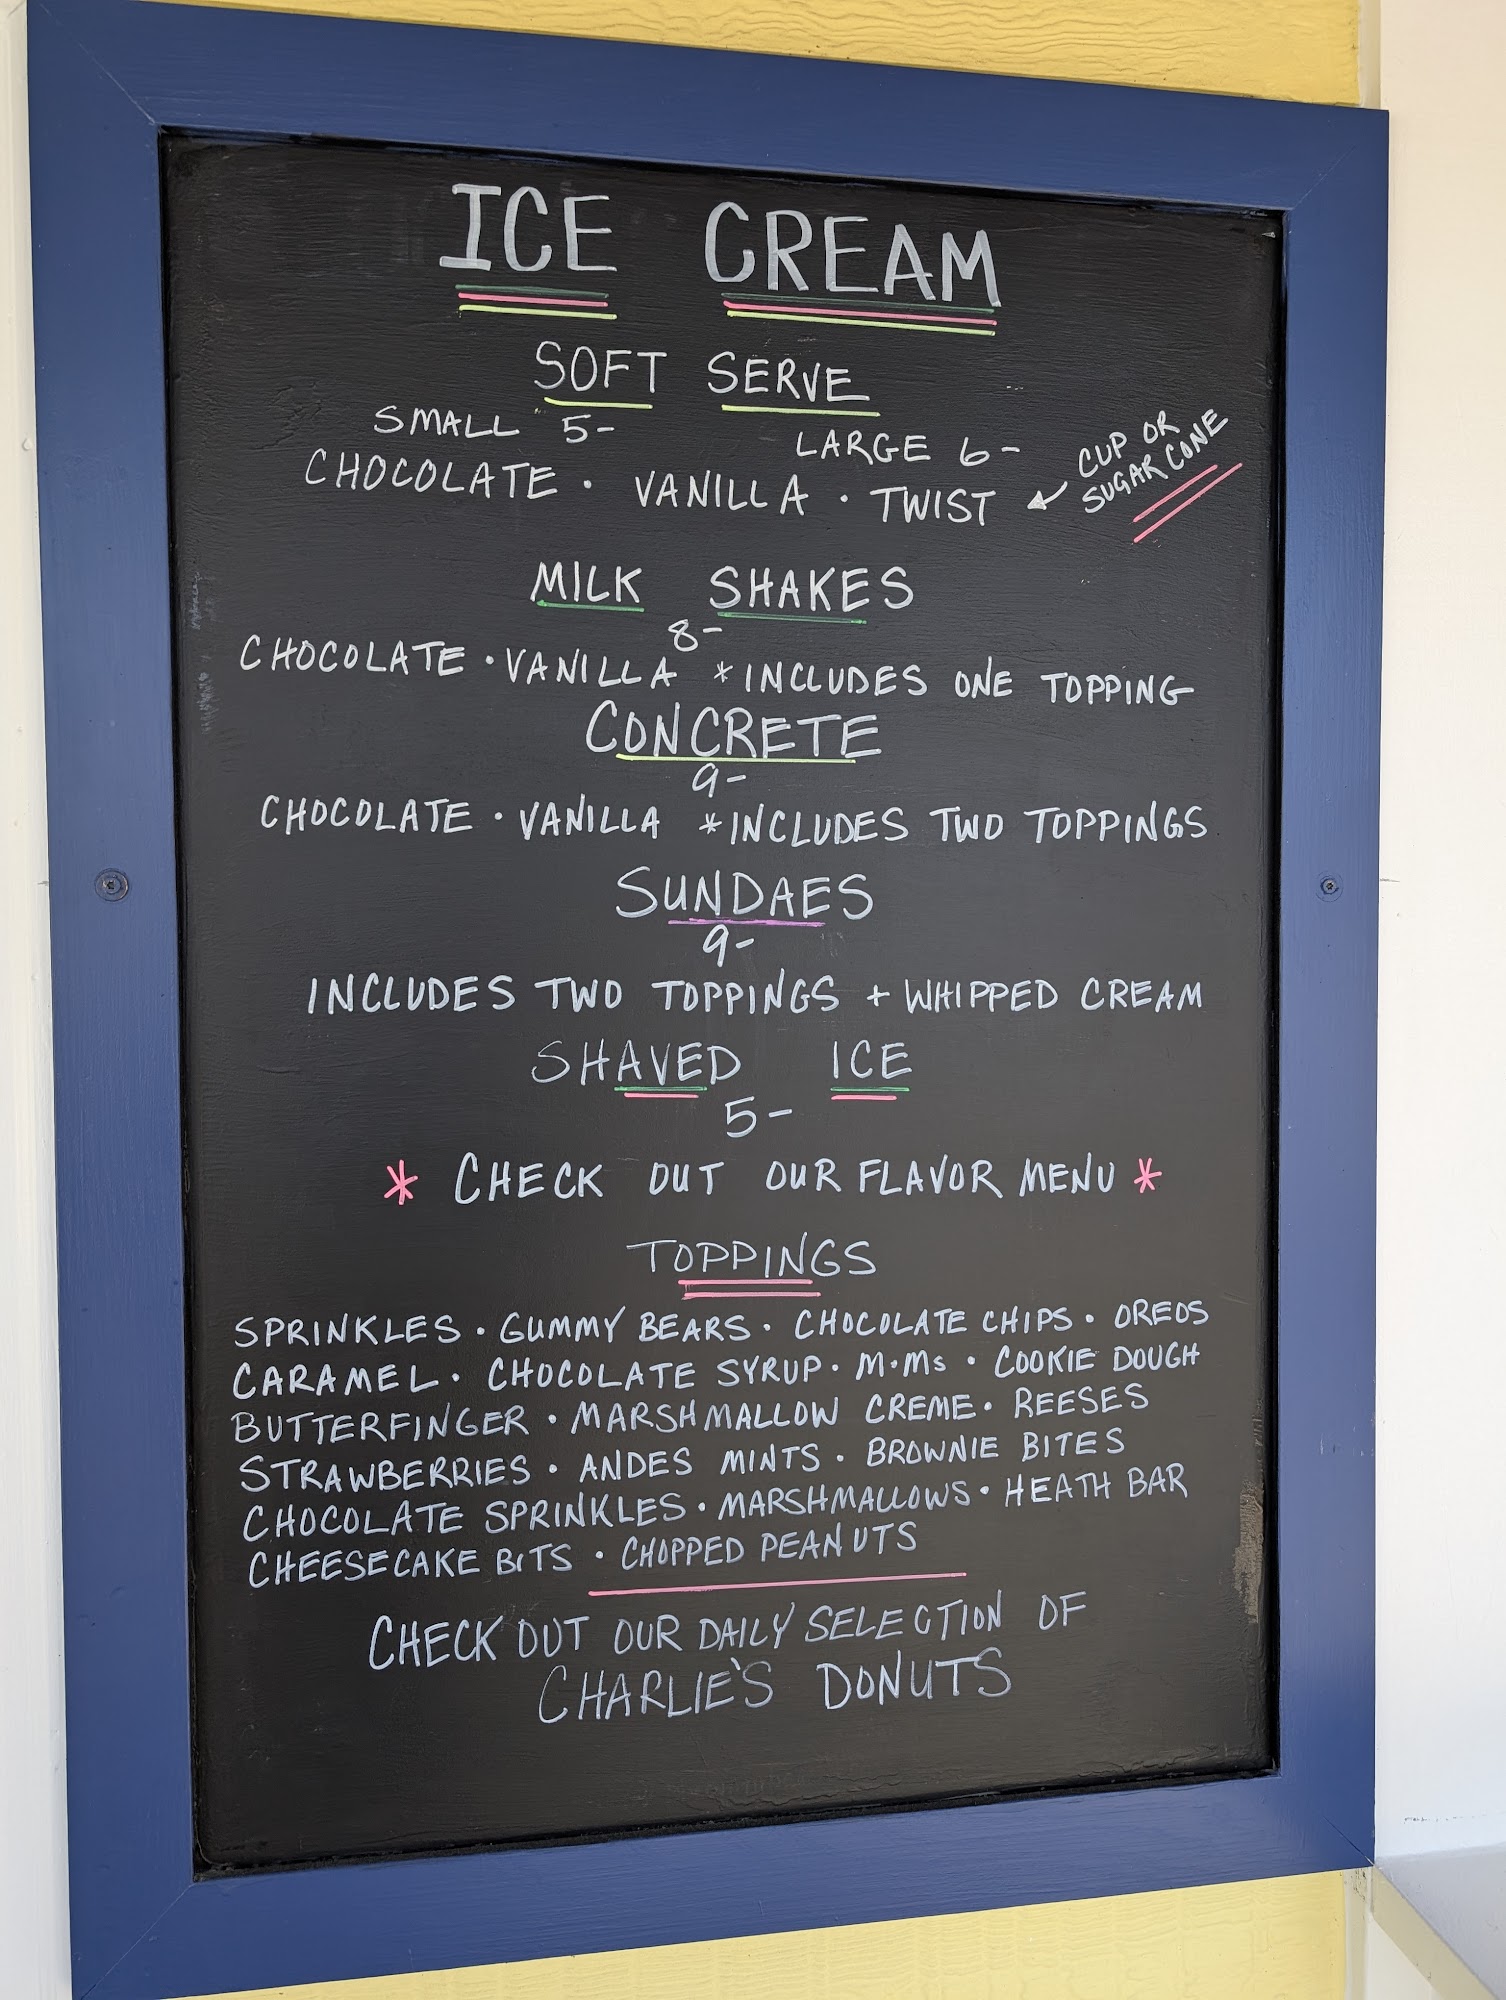 ICE CREAM
SOFT SERVE
SMALL 5-
LARGE 6-
CHOCOLATE · VANILLA · TWIST
CUP OR
SUGAR CONE
MILK SHAKES
8-
CHOCOLATE · VANILLA *INCLUDES ONE TOPPING
CONCRETE
9-
CHOCOLATE · VANILLA *INCLUDES TWO TOPPINGS
SUNDAES
9-
INCLUDES TWO TOPPINGS + WHIPPED CREAM
SHAVED ICE
5-
* CHECK OUT OUR FLAVOR MENU *
TOPPINGS
SPRINKLES · GUMMY BEARS · CHOCOLATE CHIPS · OREOS
CARAMEL · CHOCOLATE SYRUP · M·Ms · COOKIE DOUGH
BUTTERFINGER · MARSHMALLOW CREME · REESES
STRAWBERRIES · ANDES MINTS · BROWNIE BITES
CHOCOLATE SPRINKLES · MARSHMALLOWS · HEATH BAR
CHEESECAKE BITS · CHOPPED PEANUTS
CHECK OUT OUR DAILY SELECTION OF
CHARLIE'S DONUTS